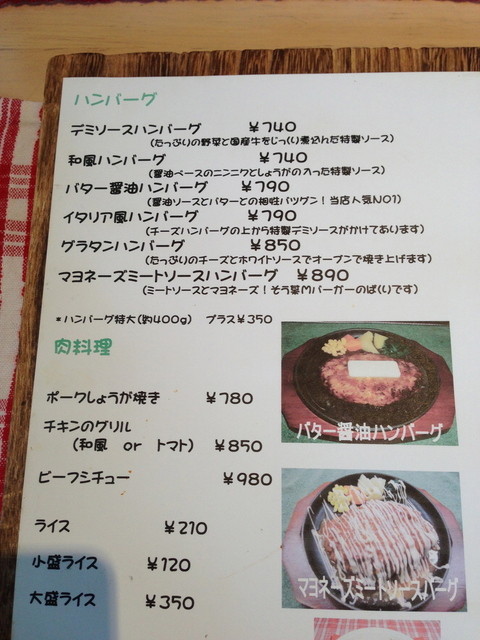 ハンバーグ
デミソースハンバーグ ￥740
(たっぷりの野菜と国産牛をじっくり煮込んだ特製ソース)
和風ハンバーグ ￥740
(醤油ベースのニンニクとしょうがの入った特製ソース)
バター醤油ハンバーグ ￥790
(醤油ソースとバターとの相性バツグン！当店人気NO1)
イタリア風ハンバーグ ￥790
(チーズハンバーグの上から特製デミソースがかけてあります)
グラタンハンバーグ ￥850
(たっぷりのチーズとホワイトソースでオーブンで焼き上げます)
マヨネーズミートソースハンバーグ ￥890
(ミートソースとマヨネーズ！そう某Mバーガーのぱくりです)
*ハンバーグ特大(約400g) プラス￥350
肉料理
ポークしょうが焼き ￥780
チキンのグリル
(和風 or トマト) ￥850
ビーフシチュー ￥980
ライス ￥210
小盛ライス ￥120
大盛ライス ￥350
バター醤油ハンバーグ
マヨネーズミートソースバーグ